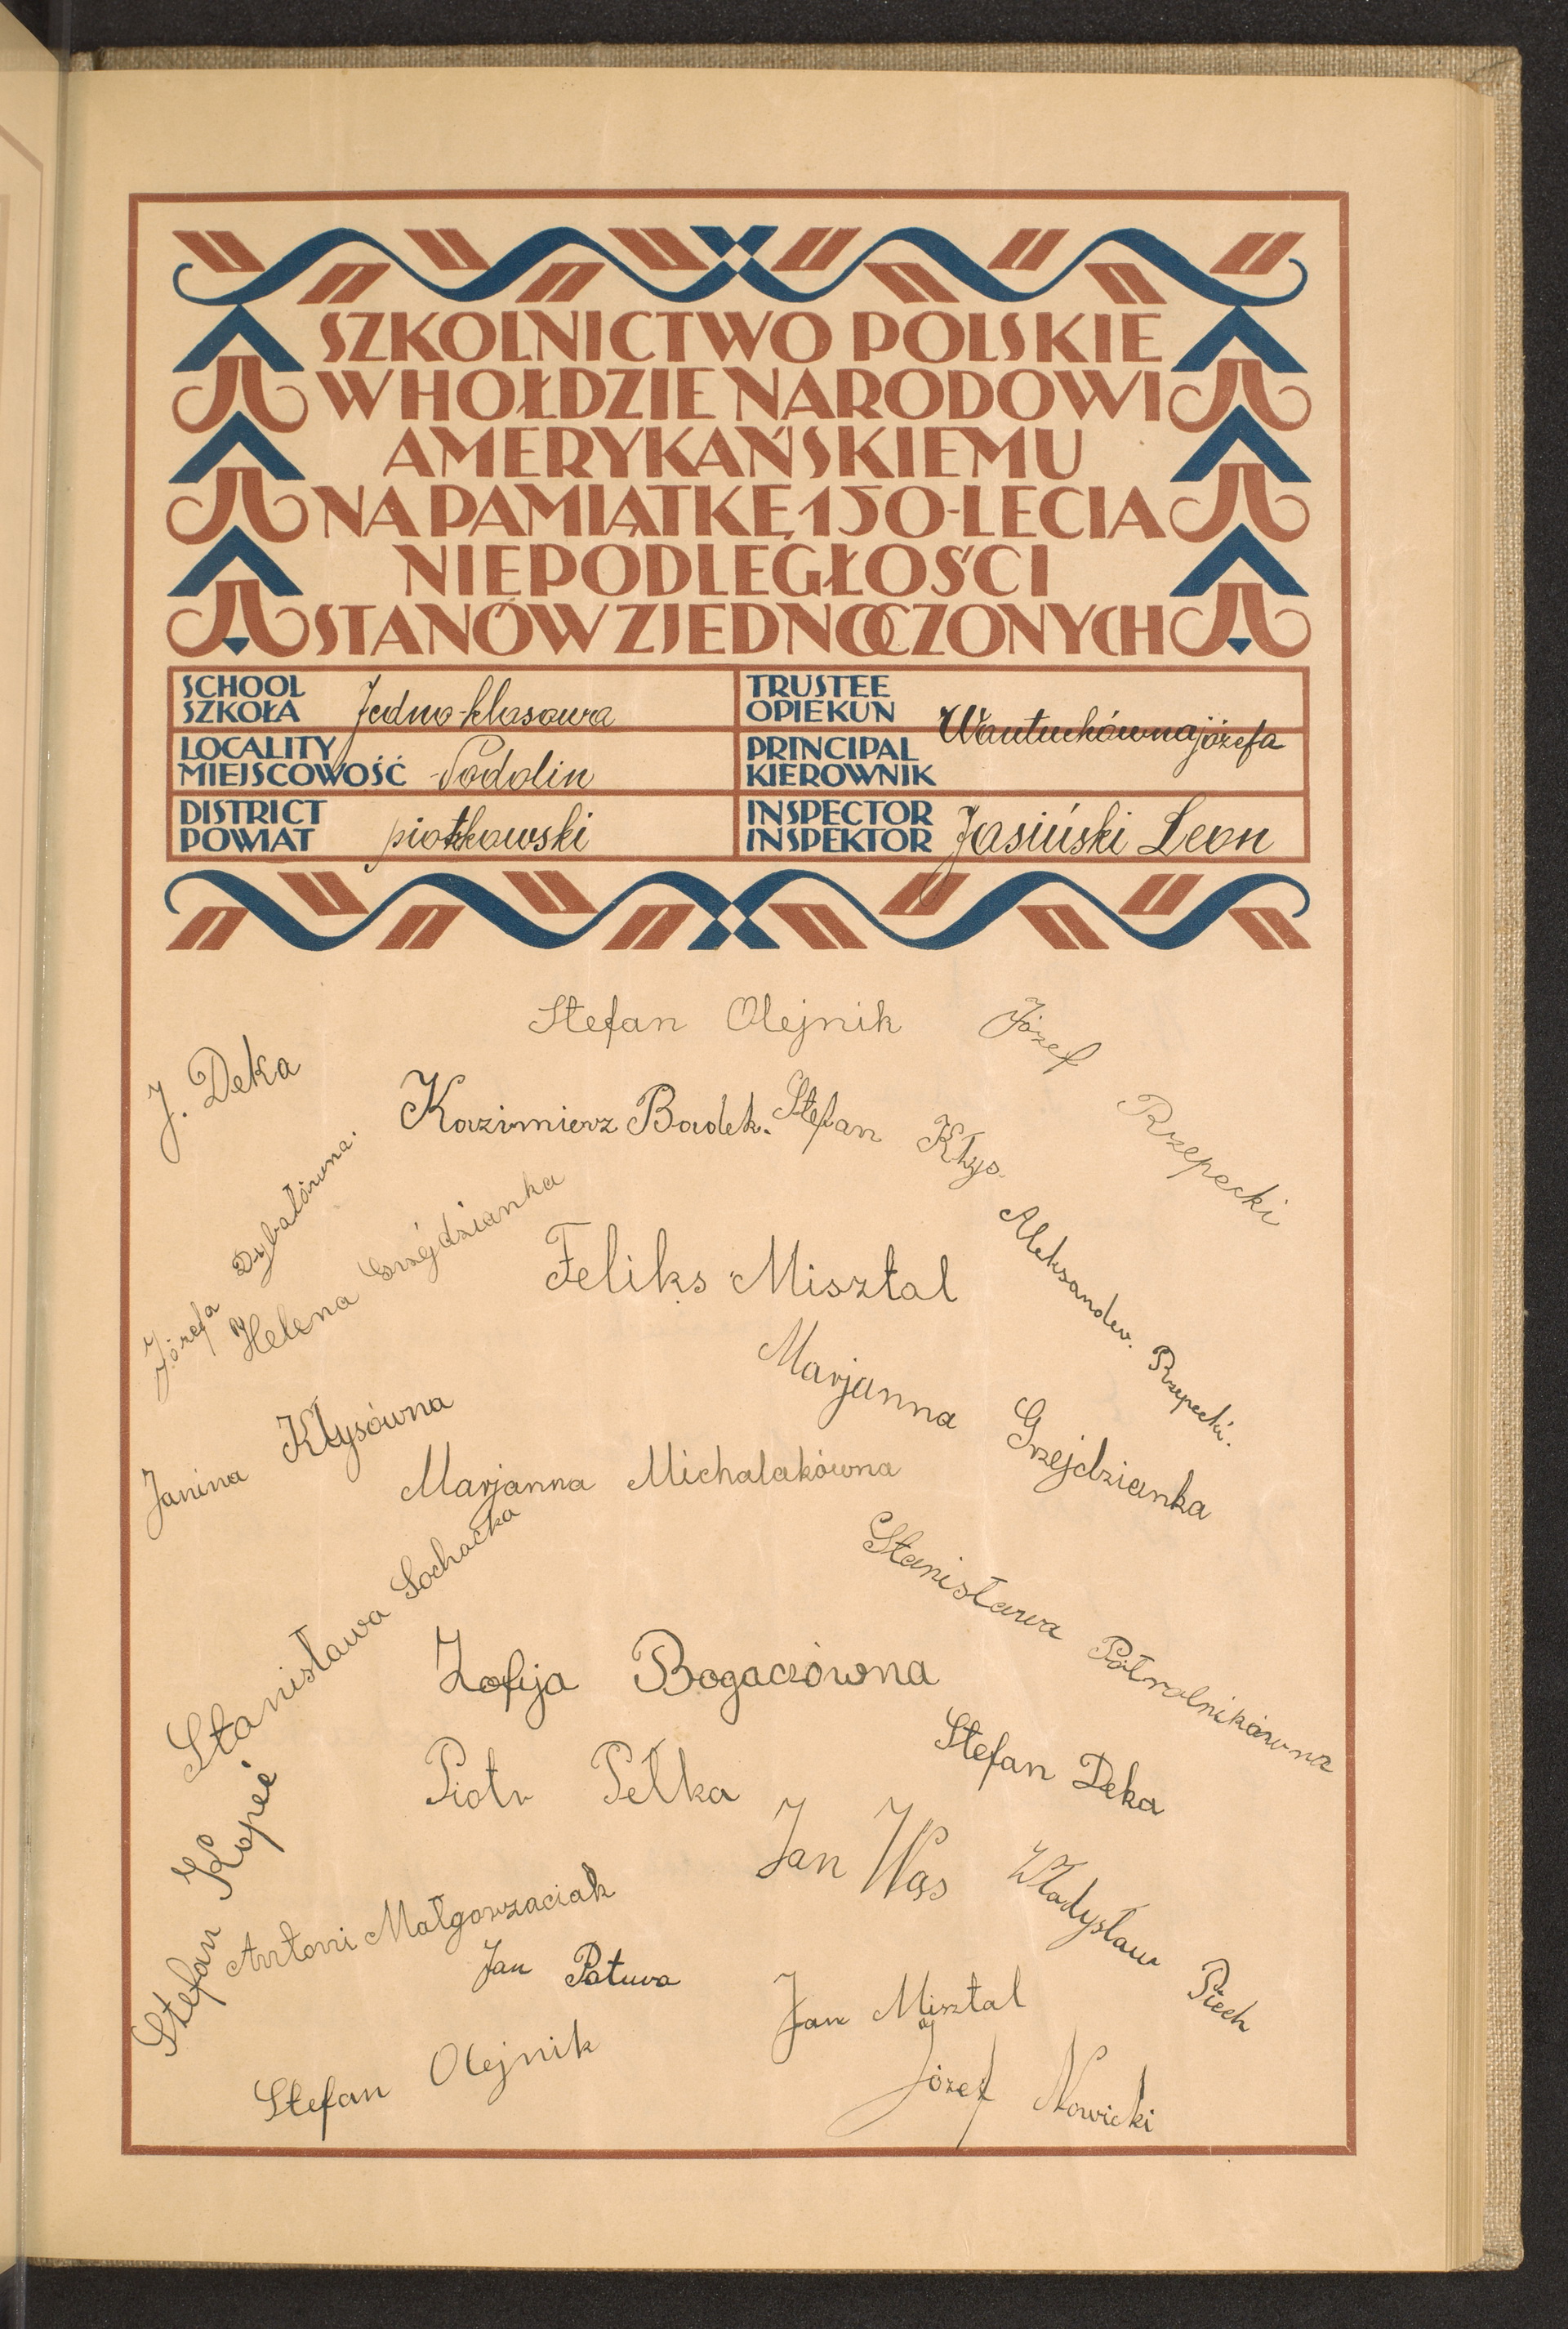 SZKOLNICTWO POLSKIE
W HOŁDZIE NARODOWI
AMERYKAŃSKIEMU
NA PAMIĄTKĘ 150-LECIA
NIEPODLEGŁOŚCI
STANÓW ZJEDNOCZONYCH
SCHOOL
SZKOŁA Jedno-klasowa
TRUSTEE
OPIEKUN
LOCALITY
MIEJSCOWOŚĆ Podolin
PRINCIPAL
KIEROWNIK
Wantuchówna józefa
DISTRICT
POWIAT piotrkowski
INSPECTOR
INSPEKTOR Jasiński Leon
Stefan Olejnik
Józef Rzepecki
J. Deka
Kazimierz Badek.
Stefan Kłys.
Józefa Dybałówna.
Helena Grzéjdzianka
Feliks Misztal
Aleksander. Rzepecki.
Marjanna Grzejdzianka
Janina Kłysówna
Marjanna Michalakówna
Stanisława Sochacka
Stanisława Półrolnikówna
Zofija Bogaczówna
Stefan Deka
Piotr Pełka
Stefan Kopeć
Jan Wąs
Władysław Piech
Antoni Małgorzaciak
Jan Patuva
Jan Misztal
Stefan Olejnik
Józef Nowicki